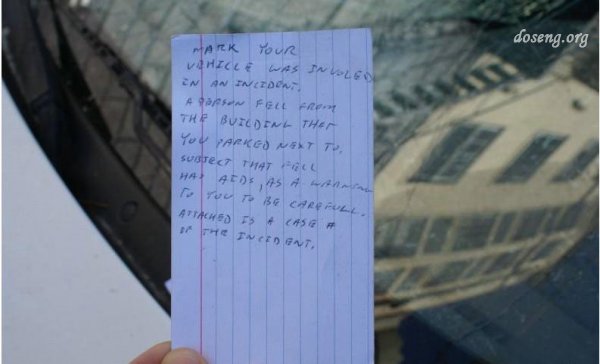 doseng.org
MARK YOUR
VEHICLE WAS INVOLED
IN AN INCIDENT.
A PERSON FELL FROM
THE BUILDING THAT
YOU PARKED NEXT TO.
SUBJECT THAT FELL
HAS AIDS, AS A WARNING
TO YOU TO BE CAREFULL.
ATTACHED IS A CASE #
OF THE INCIDENT.